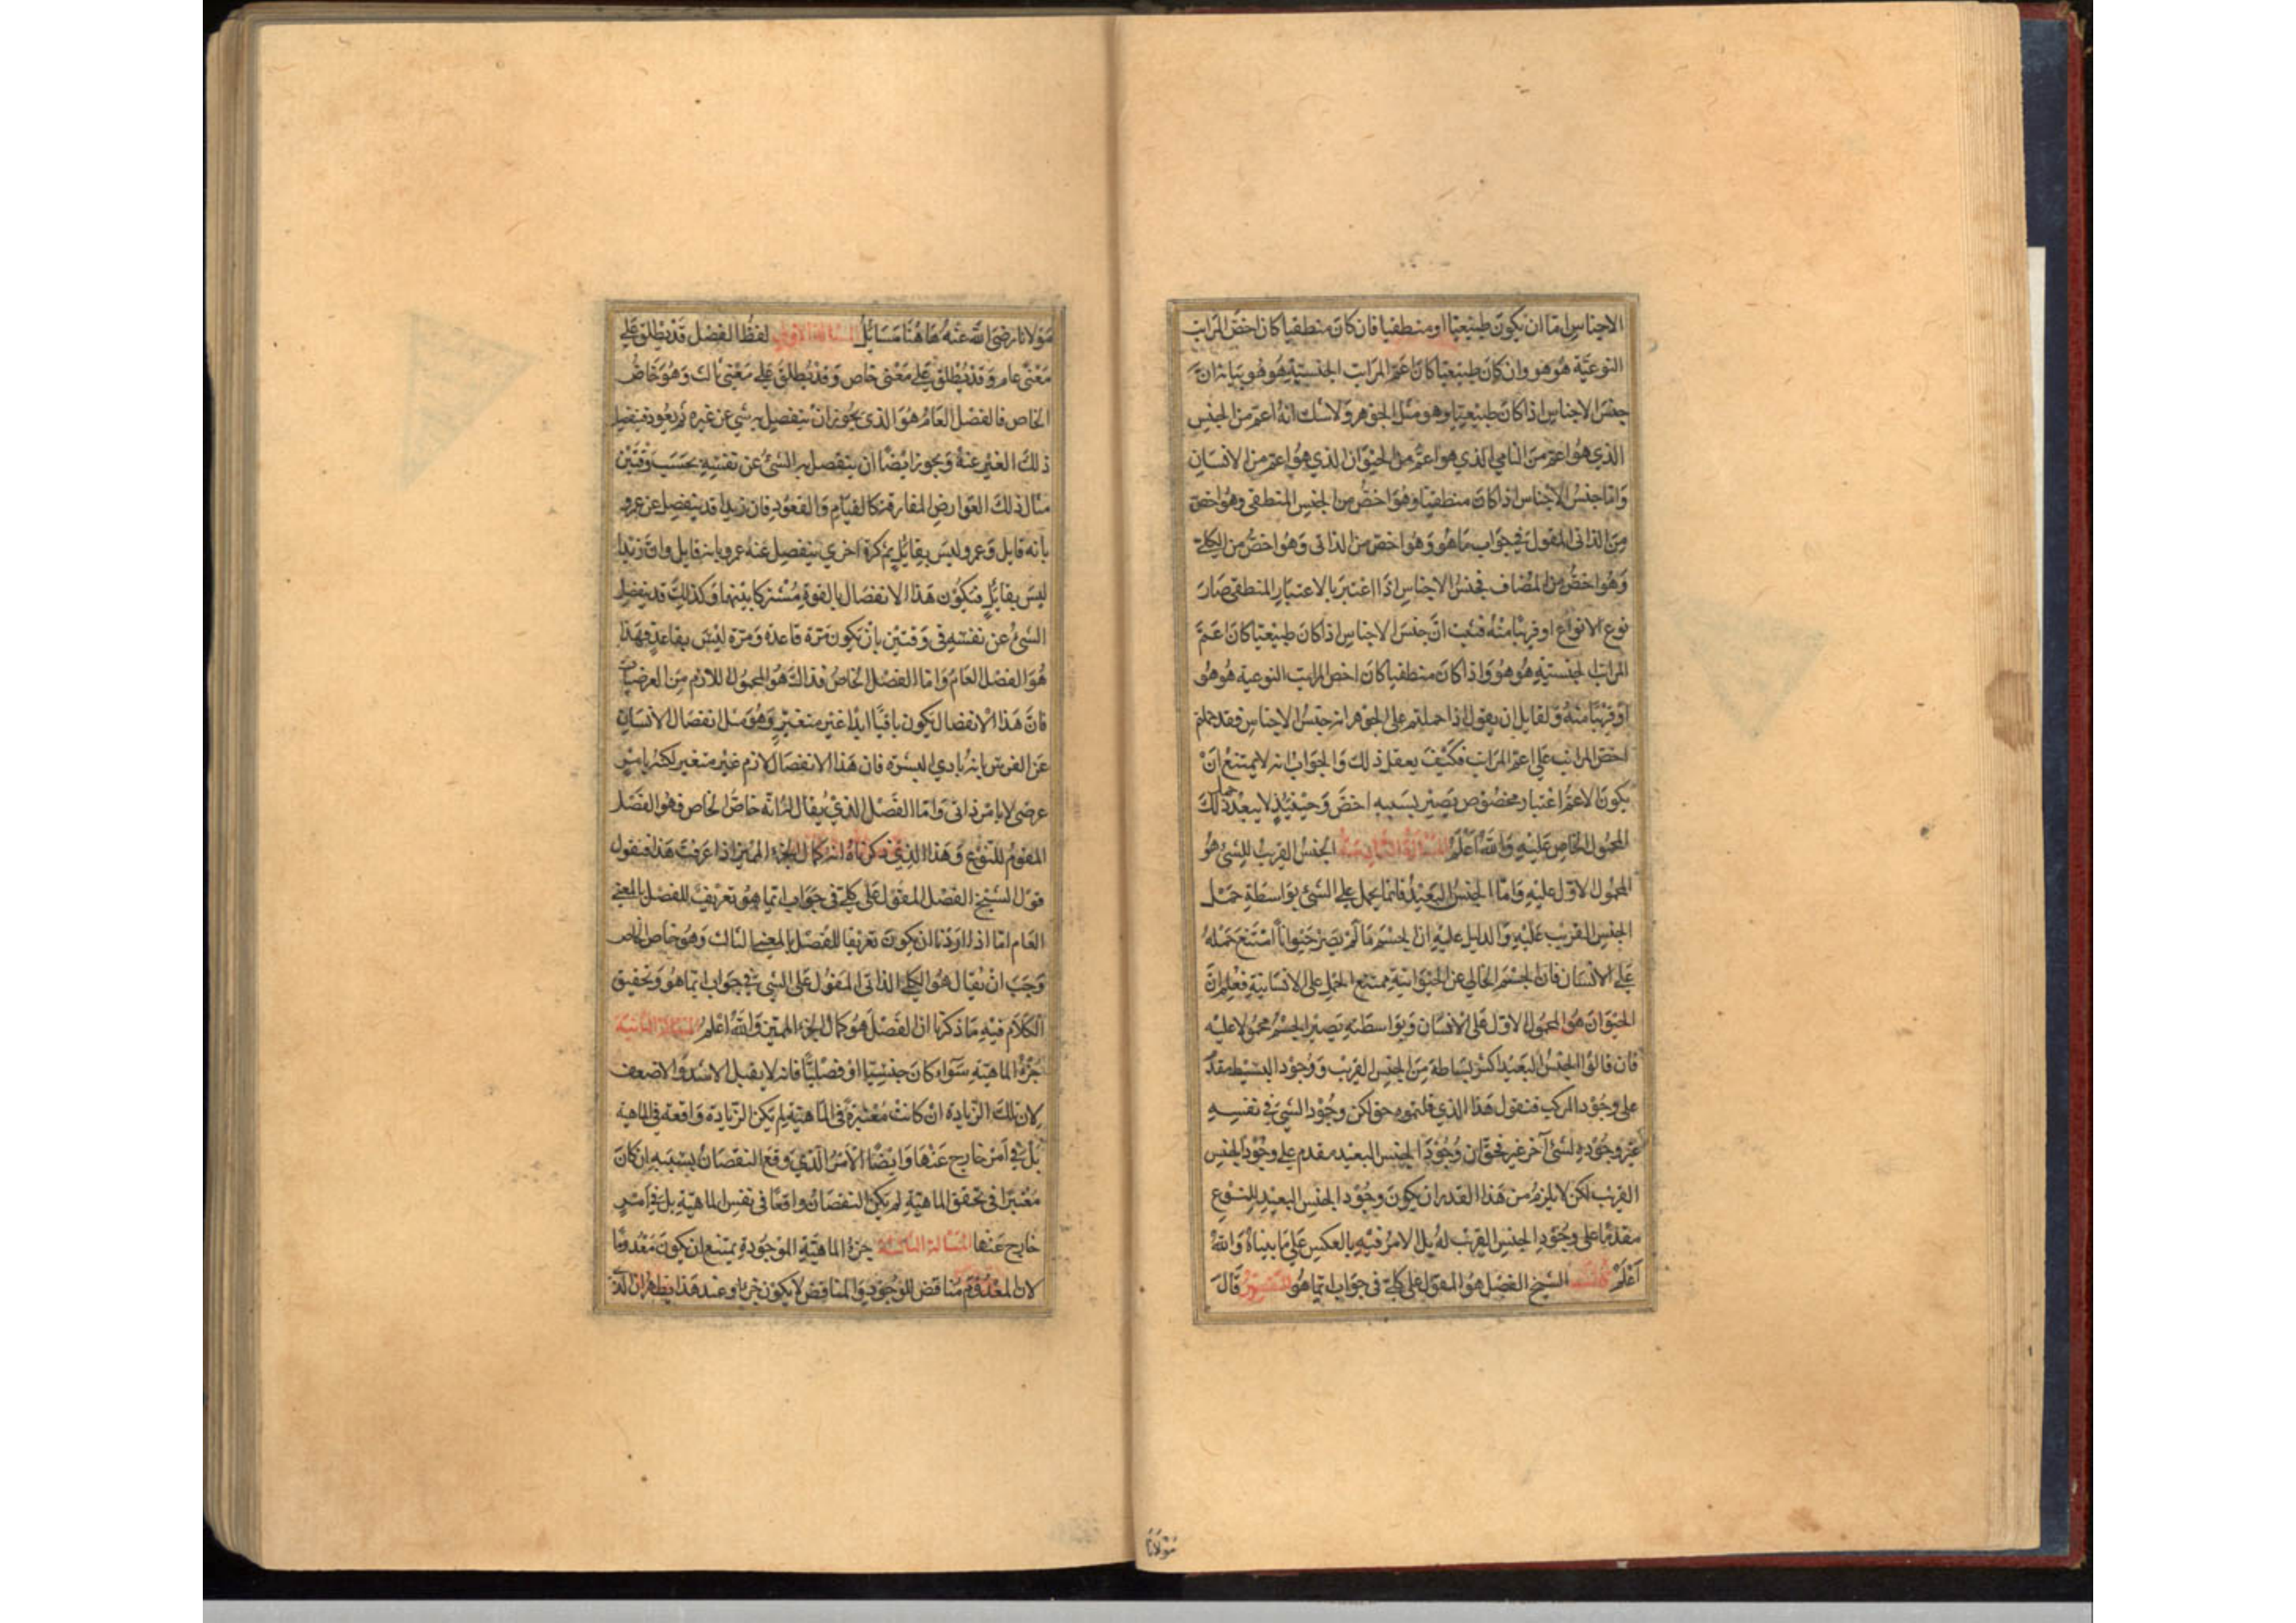 الاجناس اما ان يكون طبيعيا او منطقيا فان كان منطقيا كان اخص المراتب
النوعية هو هو وان كان طبيعيا كان اعم المراتب الجنسية هو هو بيانه ان
جنس الاجناس اذا كان طبيعيا وهو مثل الجوهر ولا شك انه اعم من الجنس
الذي هو اعم من النامي الذي هو اعم من الحيوان الذي هو اعم من الانسان
واما جنس الاجناس اذا كان منطقيا وهو اخص من الجنس المنطقي وهو اخص
من الذاتي المقول في جواب ما هو وهو اخص من الذاتي وهو اخص من الكلي
وهو اخص من المضاف فجنس الاجناس اذا اعتبر بالاعتبار المنطقي صار
نوع الانواع او قريبا منه فثبت ان جنس الاجناس اذا كان طبيعيا كان اعم
المراتب الجنسية هو هو واذا كان منطقيا كان اخص المراتب النوعية هو هو
او قريبا منه ولقايل ان يقول اذا حملتم على الجوهر انه جنس الاجناس فقد حملتم
اخص المراتب على اعم المراتب فكيف يعقل ذلك والجواب انه لا يمتنع ان
يكون الاعم اعتبار مخصوص يصير بسببه اخص وحينئذ لا يبعد حمل ذلك
المحمول الخاص عليه والله اعلم المسالة الثانية الجنس القريب للشئ هو
المحمول الاول عليه واما الجنس البعيد فانما يحمل على الشئ بواسطة حمل
الجنس القريب عليه والدليل عليه ان الجسم ما لم يصر حيوانا امتنع حمله
على الانسان فان الجسم الخالي عن الحيوانية ممتنع الحمل على الانسانية فعلم ان
الحيوان هو المحمول الاول على الانسان وبواسطته يصير الجسم محمولا عليه
فان قالوا الجنس البعيد اكثر بساطة من الجنس القريب ووجود البسيط مقدم
على وجود المركب فنقول هذا الذي قلتموه حق لكن وجود الشئ في نفسه
غير وجوده لشئ آخر غير فحق ان وجود الجنس البعيد مقدم على وجود الجنس
القريب لكن لا يلزم من هذا القدر ان يكون وجود الجنس البعيد للنوع
مقدما على وجود الجنس القريب له بل الامر فيه بالعكس على ما بيناه والله
اعلم قال الشيخ الفصل هو المقول على كلي في جواب ايما هو التفسير قال
مولانا
مولانا رضي الله عنه هاهنا مسائل المسالة الاولى لفظ الفصل قد يطلق على
معنى عام وقد يطلق على معنى خاص وقد يطلق على معنى ثالث وهو خاص
الخاص فالفصل العام هو الذي يجوز ان ينفصل به شئ عن غيره ثم يعود فينفصل
ذلك الغير عنه ويجوز ايضا ان ينفصل به الشئ عن نفسه بحسب وقتين
مثال ذلك العوارض المفارقة كالقيام والقعود فان زيدا قد ينفصل عن عمرو
بانه قايل وعمرو ليس بقايل ثم كرة اخرى ينفصل عنه عمرو بانه قايل وان زيدا
ليس بقايل فيكون هذا الانفصال بالقوة مشتركا بينهما وكذلك قد ينفصل
الشئ عن نفسه في وقتين بان يكون مرة قاعدة ومرة ليس بقاعد فهذا
هو الفصل العام واما الفصل الخاص فذاك هو المحمول اللازم من العرضيات
فان هذا الانفصال يكون باقيا ابدا غير متغير وهو مثل انفصال الانسان
عن الفرس بانه بادي البشرة فان هذا الانفصال لازم غير متغير لكنه بامر
عرضي لا بامر ذاتي واما الفصل الذي يقال له انه خاص الخاص فهو الفصل
المقوم للنوع وهذا الذي ذكرناه انه كمال الجزء المميز اذا عرفت هذا فنقول
قول الشيخ الفصل المقول على كلي في جواب ايما هو تعريف للفصل بالمعنى
العام اما اذا اردنا ان يكون تعريفا للفصل بالمعنى الثالث وهو خاص الخاص
وجب ان يقال هو الكلي الذاتي المقول على الشئ في جواب ايما هو وتحقيق
الكلام فيه ما ذكرنا ان الفصل هو كمال الجزء المميز والله اعلم المسالة الثانية
جزء الماهية سواء كان جنسيا او فصليا فانه لا يقبل الاشد والاضعف
لان تلك الزيادة ان كانت معتبرة في الماهية لم يكن الزيادة واقعة في الماهية
بل في امر خارج عنها وايضا الامر الذي وقع النقصان بسببه ان كان
معتبرا في تحقق الماهية لم يكن النقصان واقعا في نفس الماهية بل في امر
خارج عنها المسالة الثالثة جزء الماهية الموجودة يمتنع ان يكون معدوما
لان المعدوم مناقض للموجود والمناقض لا يكون جزءا وعند هذا يظهر ان الذي